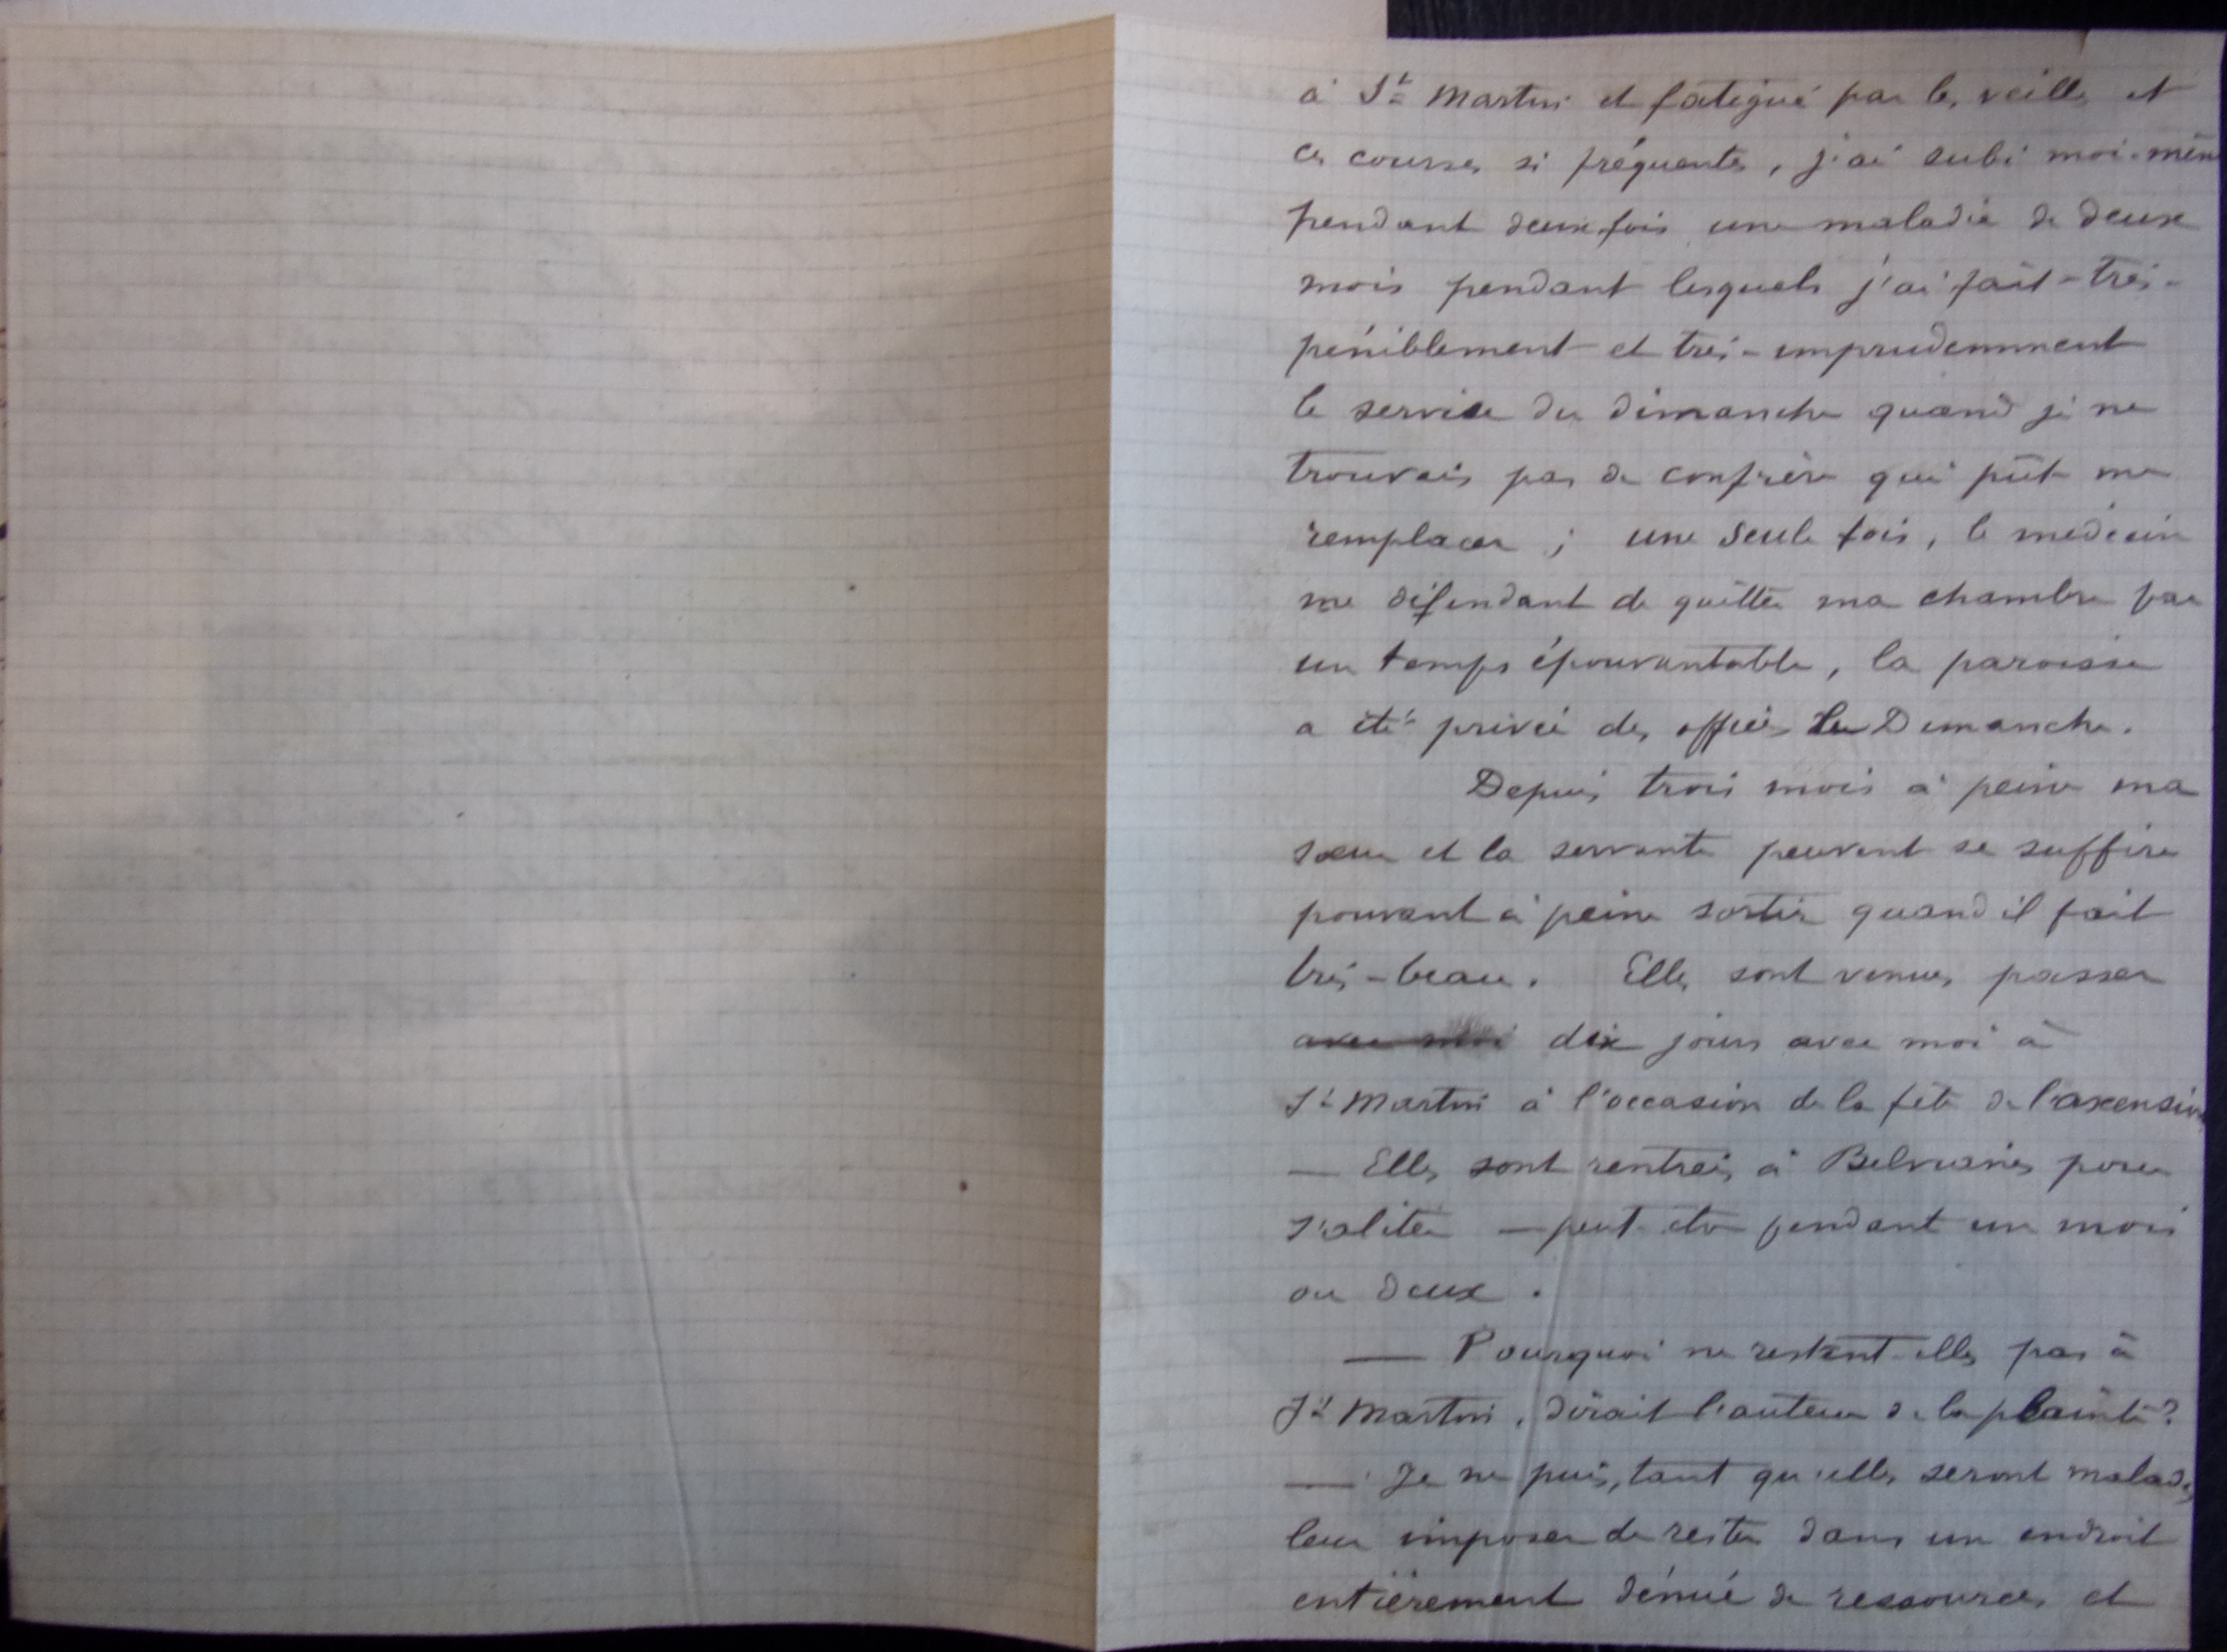 à St Martin et fatigué par les veilles et
ces courses si fréquentes, j'ai subi moi-même
pendant deux fois une maladie de deux
mois pendant lesquels j'ai fait très-
péniblement et très-imprudemment
le service du dimanche quand je ne
trouvais pas de confrère qui pût me
remplacer ; une seule fois, le médecin
me défendant de quitter ma chambre par
un temps épouvantable, la paroisse
a été privée des offices du Dimanche.
Depuis trois mois à peine ma
sœur et la servante peuvent se suffire
pouvant à peine sortir quand il fait
très-beau. Elles sont venues passer
avec moi dix jours avec moi à
St Martin à l'occasion de la fête de l'ascension
— Elles sont rentrées à Belvianes pour
s'aliter — peut-être pendant un mois
ou deux.
— Pourquoi ne restent-elles pas à
St Martin, dirait l'auteur de la plainte ?
— Je ne puis, tant qu'elles seront malades,
leur imposer de rester dans un endroit
entièrement dénué de ressources et